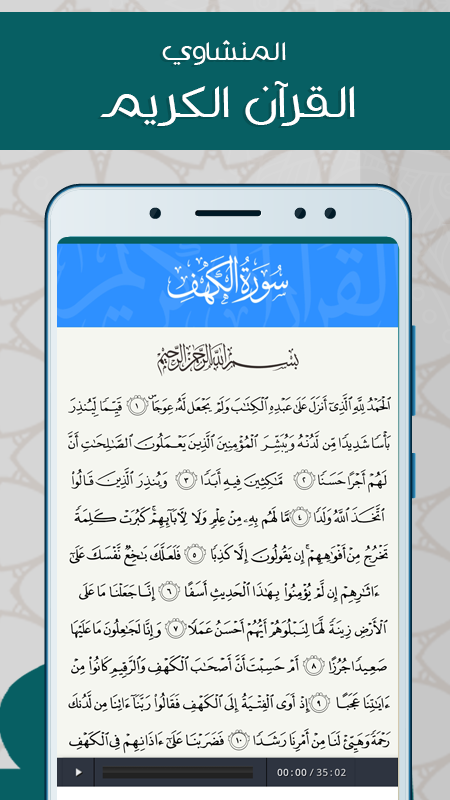 المنشاوي
القرآن الكريم
سورة الكهف
بسم الله الرحمن الرحيم
ٱلْحَمْدُ لِلَّهِ ٱلَّذِىٓ أَنزَلَ عَلَىٰ عَبْدِهِ ٱلْكِتَٰبَ وَلَمْ يَجْعَل لَّهُۥ عِوَجَا ۜ ١ قَيِّمًا لِّيُنذِرَ
بَأْسًا شَدِيدًا مِّن لَّدُنْهُ وَيُبَشِّرَ ٱلْمُؤْمِنِينَ ٱلَّذِينَ يَعْمَلُونَ ٱلصَّٰلِحَٰتِ أَنَّ
لَهُمْ أَجْرًا حَسَنًا ٢ مَّٰكِثِينَ فِيهِ أَبَدًا ٣ وَيُنذِرَ ٱلَّذِينَ قَالُوا۟
ٱتَّخَذَ ٱللَّهُ وَلَدًا ٤ مَّا لَهُم بِهِۦ مِنْ عِلْمٍ وَلَا لِءَابَآئِهِمْ ۚ كَبُرَتْ كَلِمَةً
تَخْرُجُ مِنْ أَفْوَٰهِهِمْ ۚ إِن يَقُولُونَ إِلَّا كَذِبًا ٥ فَلَعَلَّكَ بَٰخِعٌ نَّفْسَكَ عَلَىٰٓ
ءَاثَٰرِهِمْ إِن لَّمْ يُؤْمِنُوا۟ بِهَٰذَا ٱلْحَدِيثِ أَسَفًا ٦ إِنَّا جَعَلْنَا مَا عَلَى
ٱلْأَرْضِ زِينَةً لَّهَا لِنَبْلُوَهُمْ أَيُّهُمْ أَحْسَنُ عَمَلًا ٧ وَإِنَّا لَجَٰعِلُونَ مَا عَلَيْهَا
صَعِيدًا جُرُزًا ٨ أَمْ حَسِبْتَ أَنَّ أَصْحَٰبَ ٱلْكَهْفِ وَٱلرَّقِيمِ كَانُوا۟ مِنْ
ءَايَٰتِنَا عَجَبًا ٩ إِذْ أَوَى ٱلْفِتْيَةُ إِلَى ٱلْكَهْفِ فَقَالُوا۟ رَبَّنَآ ءَاتِنَا مِن لَّدُنكَ
رَحْمَةً وَهَيِّئْ لَنَا مِنْ أَمْرِنَا رَشَدًا ١٠ فَضَرَبْنَا عَلَىٰٓ ءَاذَانِهِمْ فِى ٱلْكَهْفِ
00:00 / 35:02